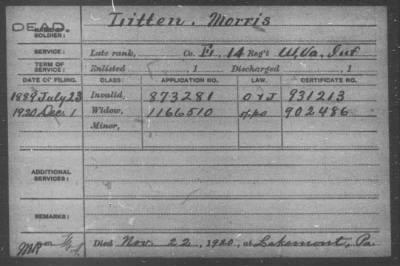 DEAD. Litten. Morris
SOLDIER:
SERVICE: Late rank, Co. E, 14 Reg't W.Va. Inf
TERM OF SERVICE: Enlisted , 1 Discharged , 1
DATE OF FILING. CLASS: APPLICATION NO. LAW. CERTIFICATE NO.
1889 July 23 Invalid, 873281 O & J 931213
1920 Dec. 1 Widow, 1166510 902486
Minor,
ADDITIONAL SERVICES:
REMARKS:
Died Nov. 22, 1920, at Lakemont, Pa